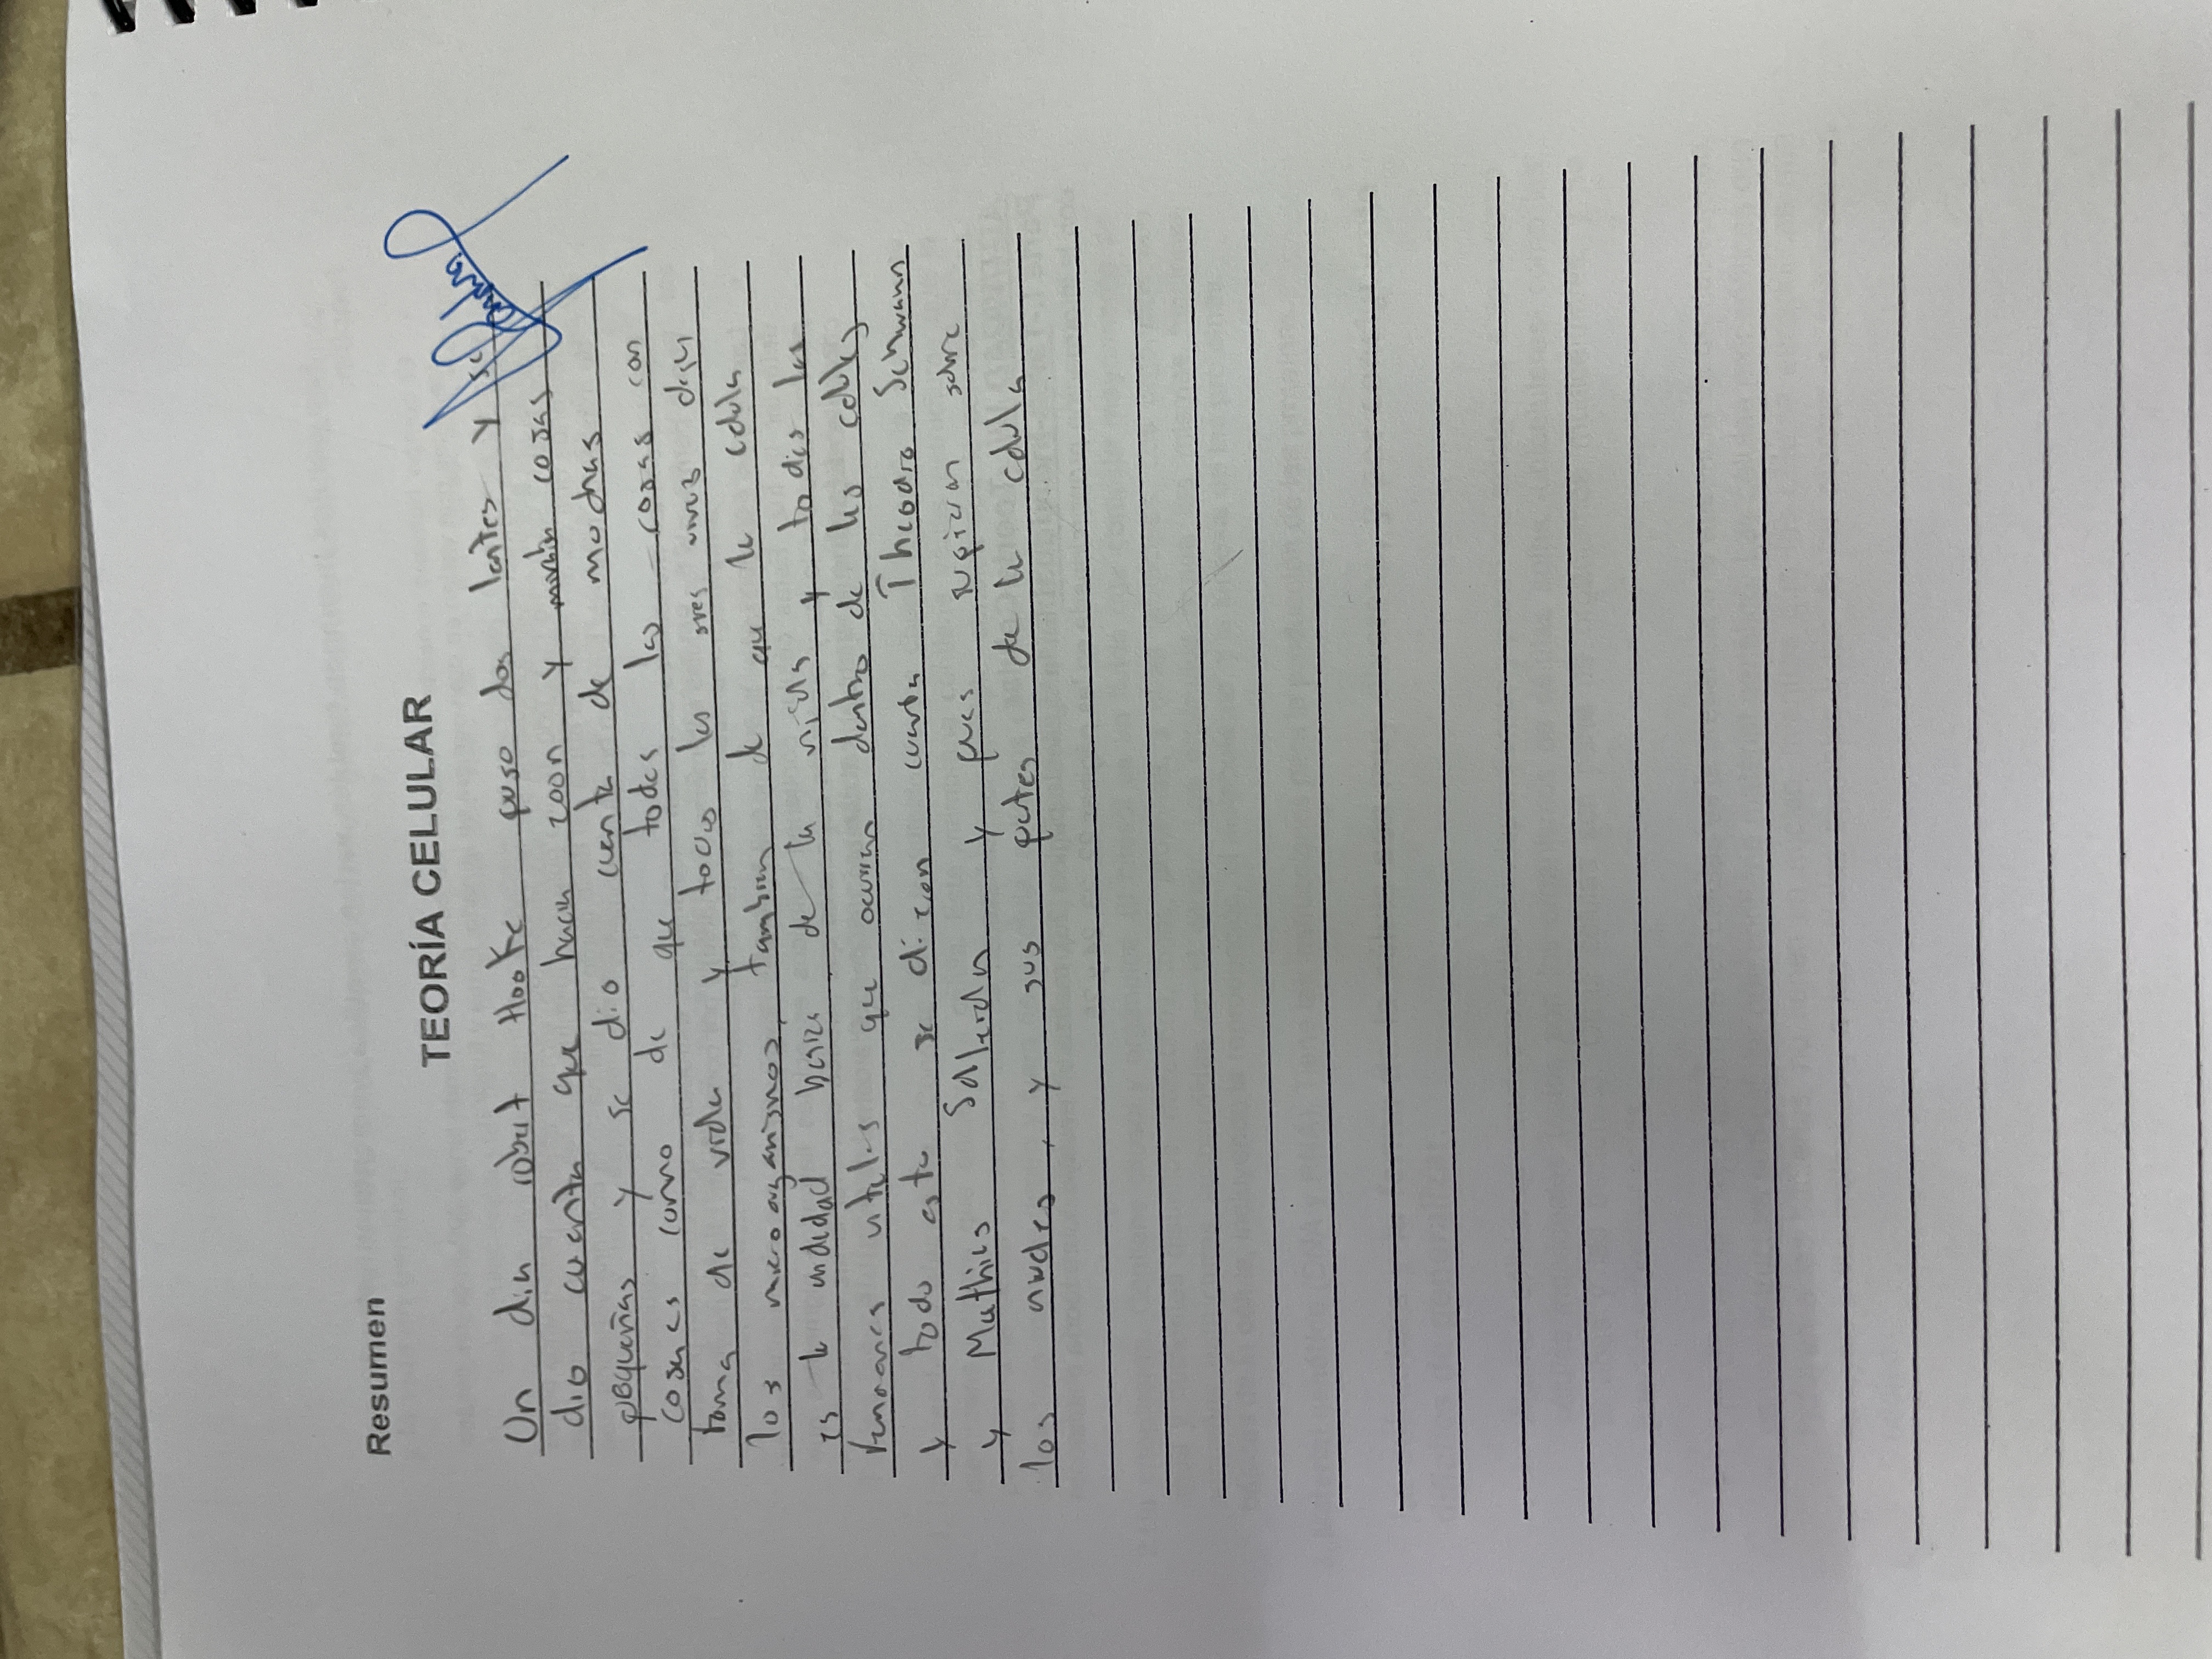 Resumen
TEORÍA CELULAR
Un dia robert Hooke puso dos lentes y se
dio cuenta que hacian zoon y cosas
pequeñas y se dio cuenta de muchas
cosas como de que todas las cosas con
forma de vida y todos los seres vivos
los microorganismos, tambien de que la celula
es la unidad basica de la vida y todas las
vitales que ocurren dentro de las celulas
y todo esto se dieron cuenta Theodro Schwann
y Mathias y pues sobre
los , y sus partes de la celula